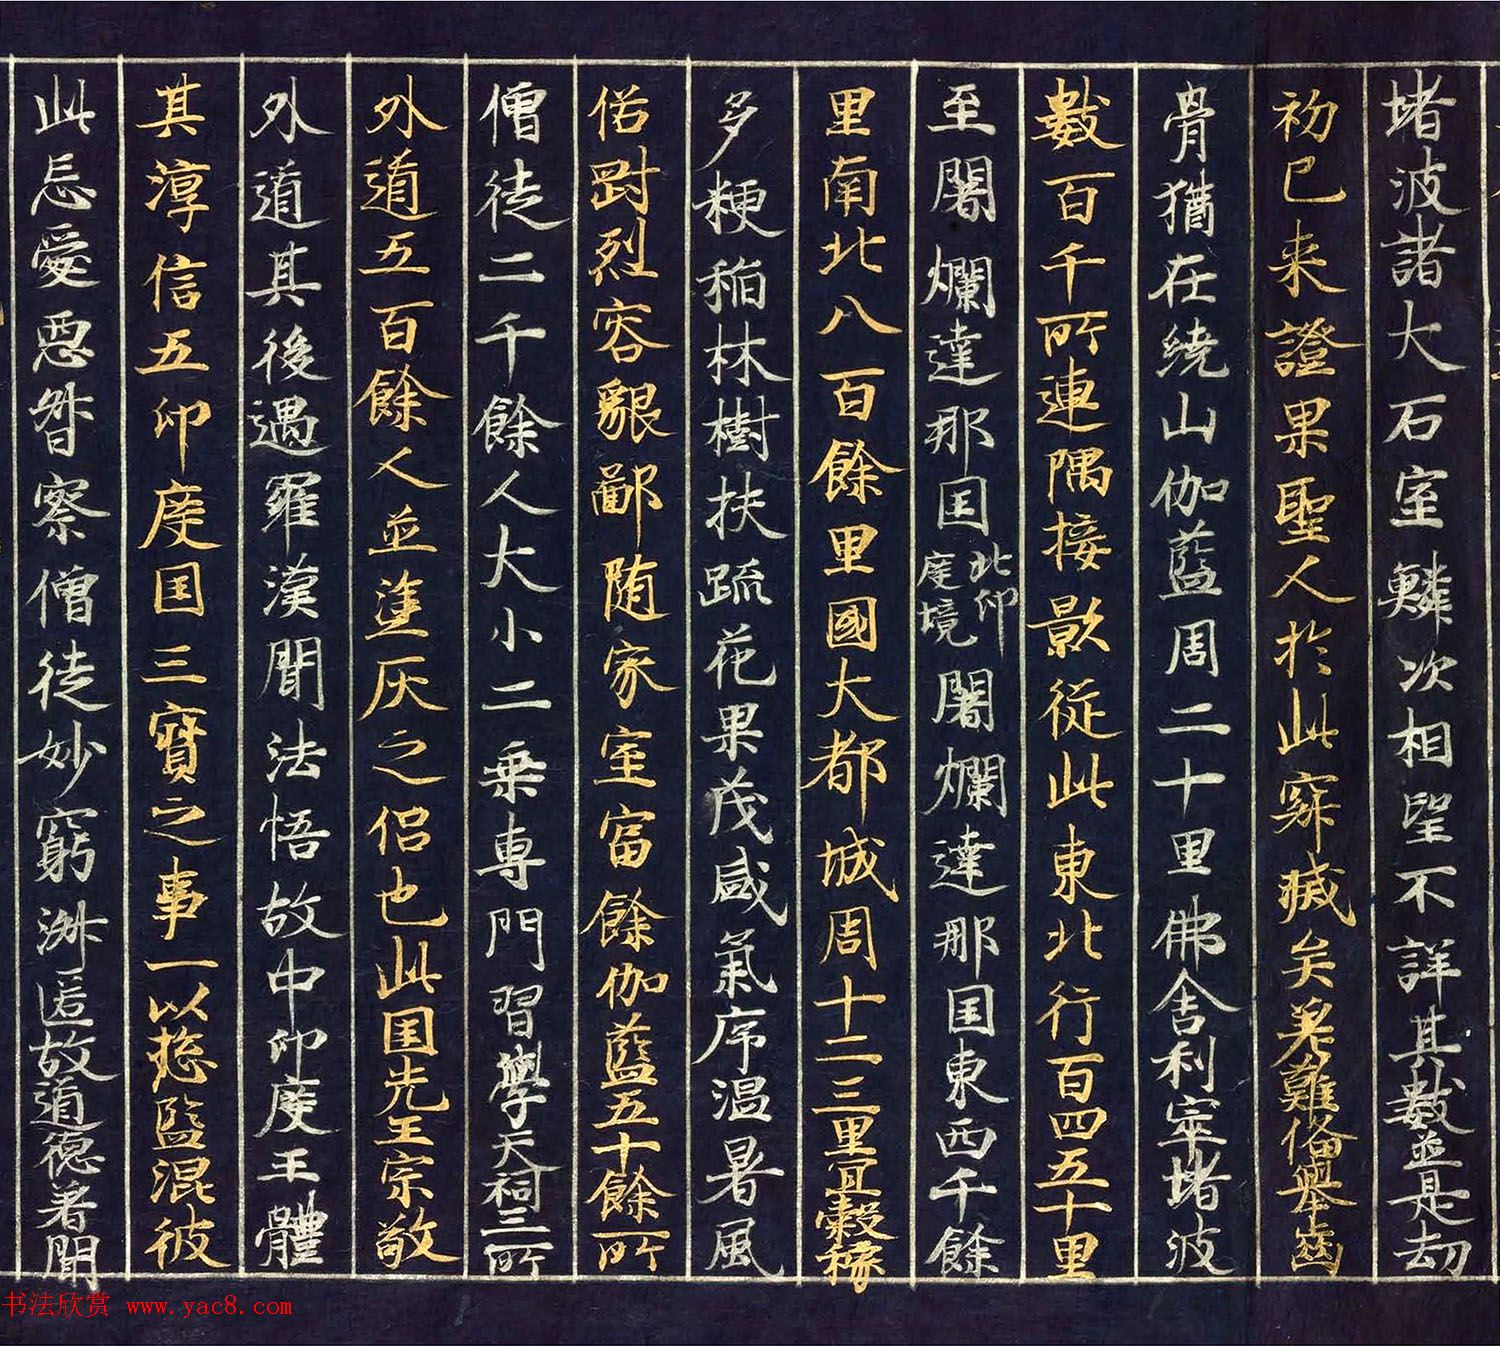 堵波諸大石室鱗次相望不詳其數並是劫
初已来證果聖人於此寐滅矣差難俻舉齒
骨猶在繞山伽藍周二十里佛舍利窣堵波
數百千所連隅接影従此東北行百四五十里
至闍爛達那国北印度境闍爛達那国東西千餘
里南北八百餘里國大都城周十二三里宜穀稼
多粳稲林樹扶疏花果茂盛氣序温暑風
俗尅烈容皃鄙随家室富餘伽藍五十餘所
僧徒二千餘人大小二乗専門習學天祠三所
外道五百餘人並塗灰之侣也此国先王宗敬
外道其後遇羅漢聞法悟故中印度王體
其淳信五印度国三寶之事一以惣監混彼
此忘愛悪督察僧徒妙窮淋慝故道徳著聞
书法欣赏 www.yac8.com